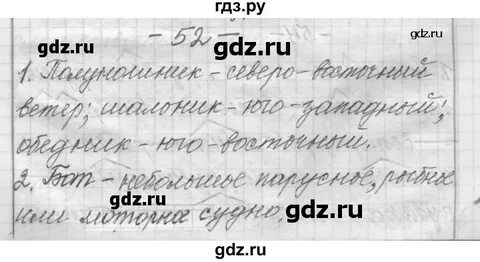 гдз.ру
- 52 -
gdz.ru gdz.ru
1. Полуношник - северо-восточный
ветер; шалоник - юго-западный;
gdz.ru gdz.ru
обедник - юго-восточный.
2. Бот - небольшое парусное, рыбное
gdz.ru gdz.ru
или моторное судно.
gdz.ru gdz.ru